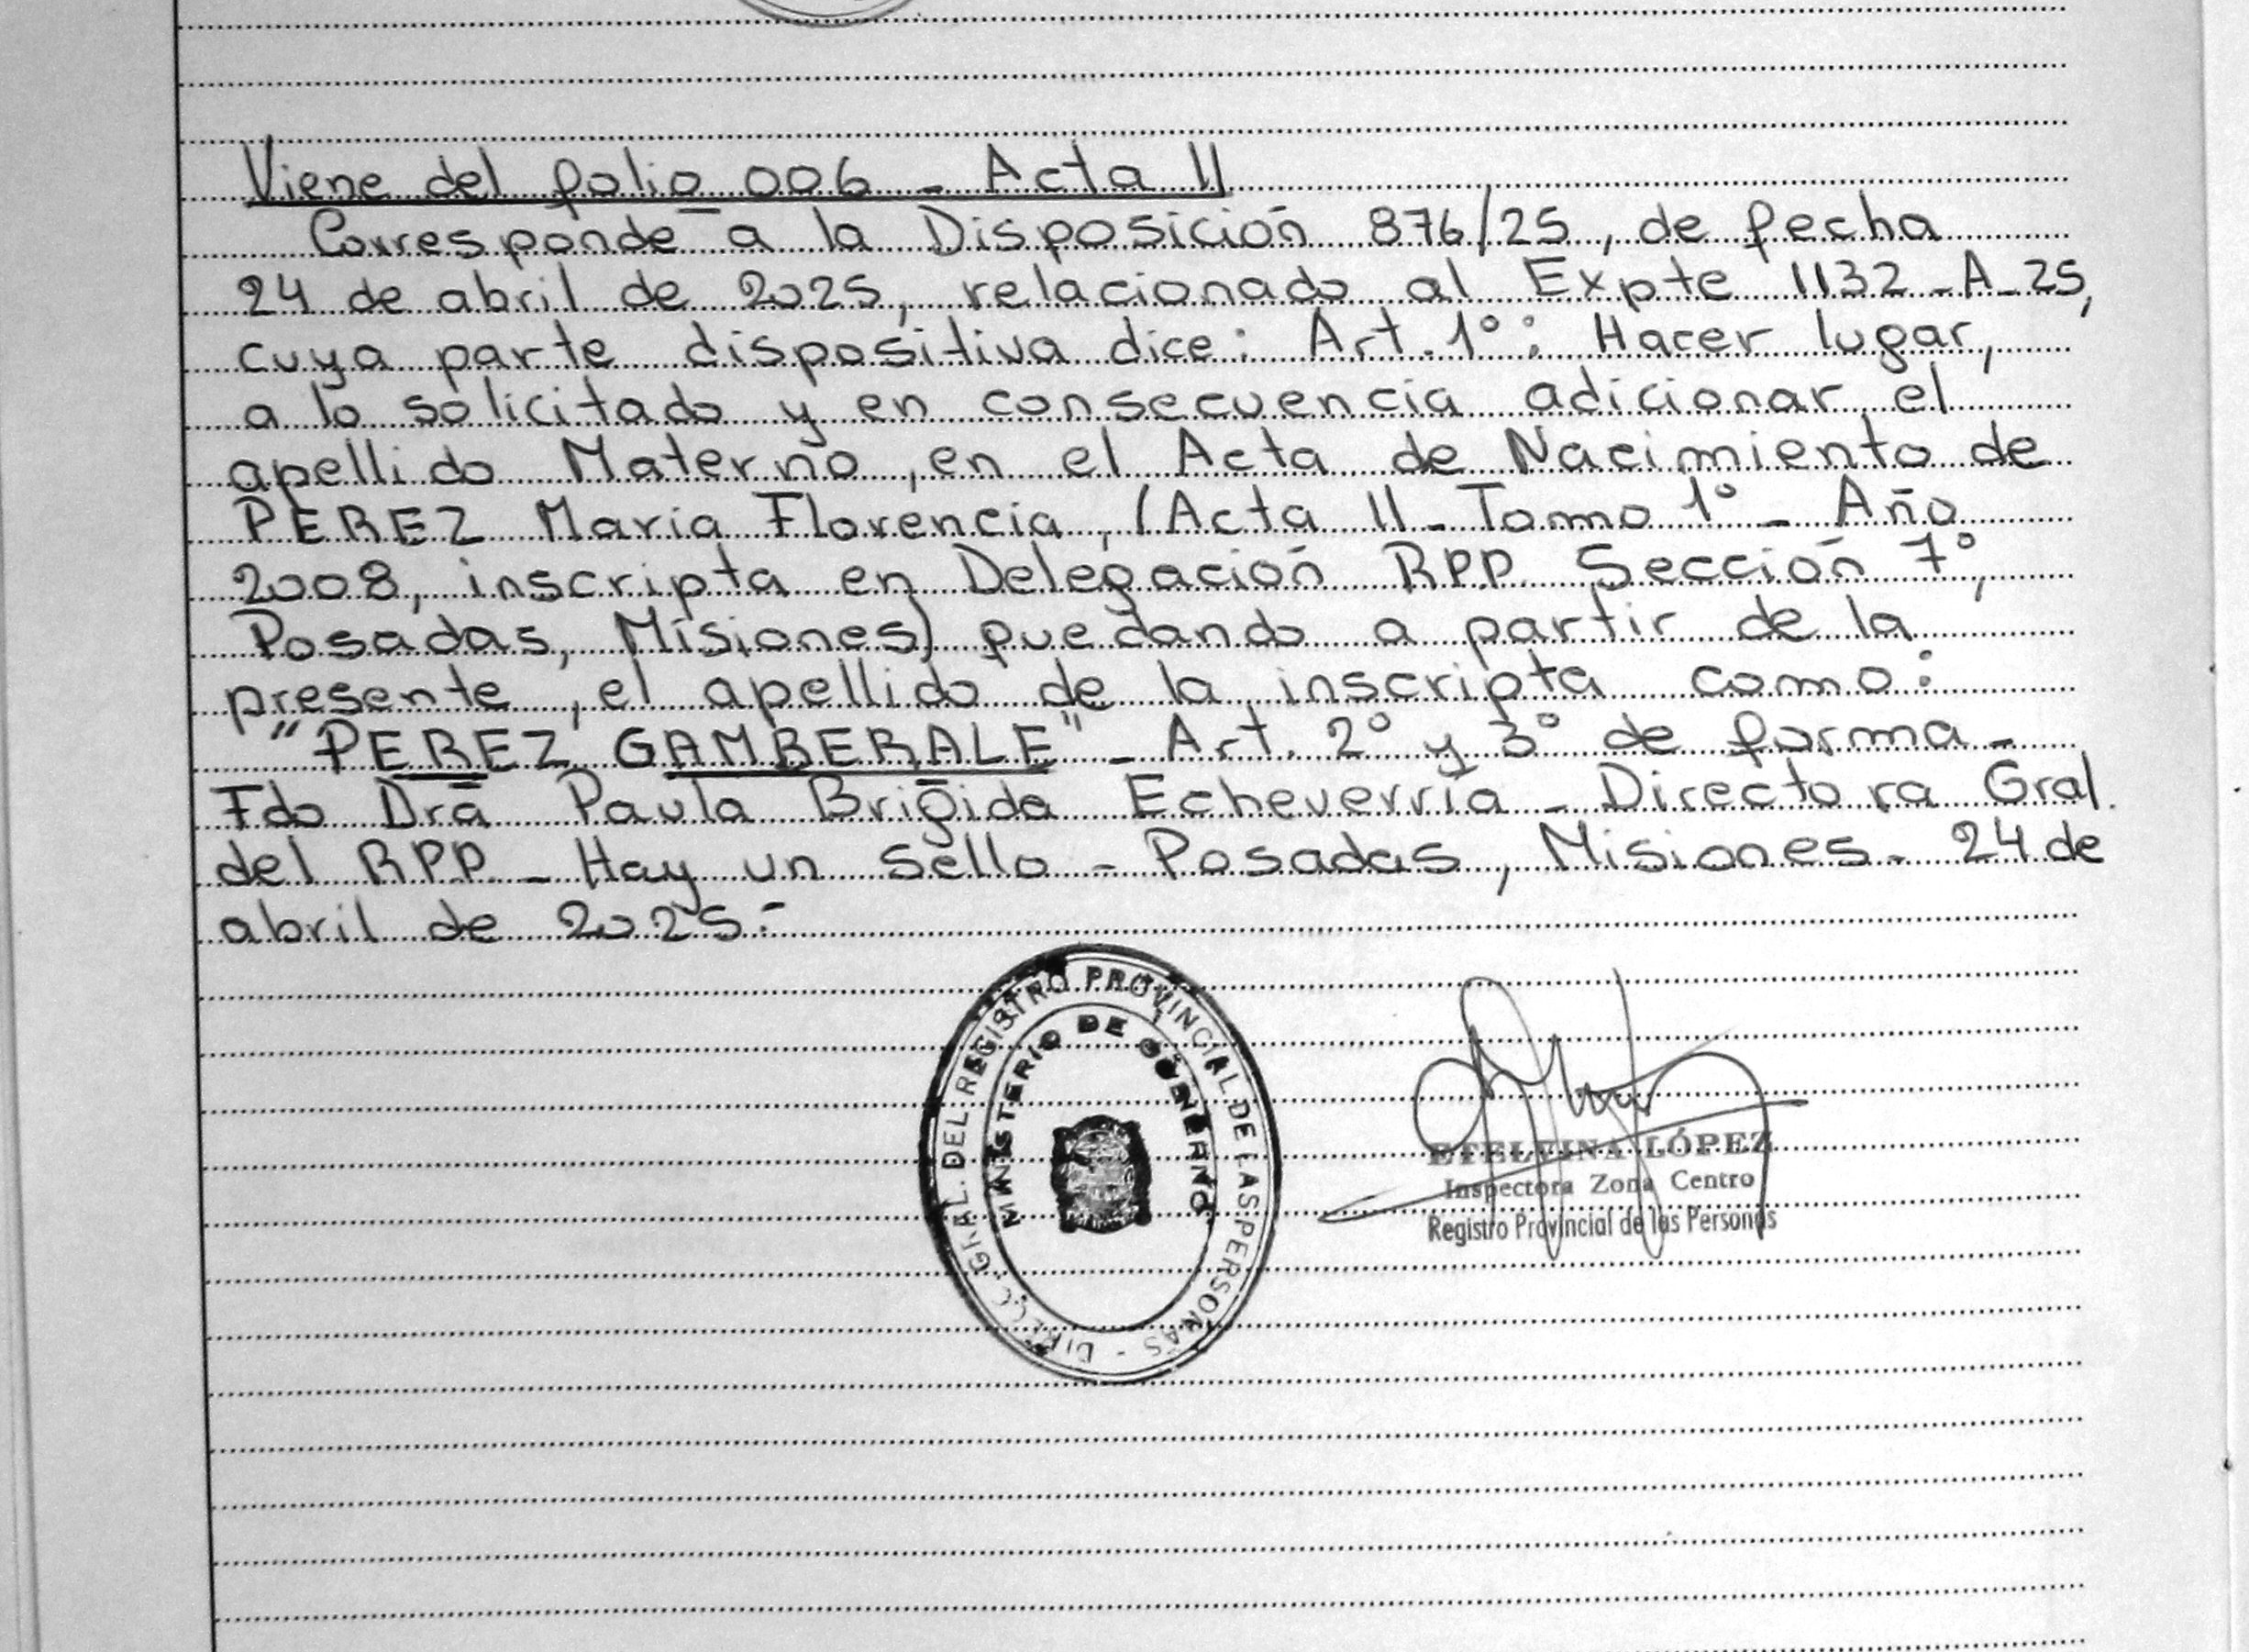 Viene del folio 006 - Acta 11
Corresponde a la Disposición 876/25, de fecha
24 de abril de 2025, relacionado al Expte 1132-A-25,
cuya parte dispositiva dice: Art. 1°: Hacer lugar,
a lo solicitado y en consecuencia adicionar el
apellido Materno, en el Acta de Nacimiento de
PEREZ Maria Florencia, (Acta 11 - Tomo 1° - Año
2008, inscripta en Delegación RPP. Sección 7°,
Posadas, Misiones) quedando a partir de la
presente, el apellido de la inscripta como:
"PEREZ GAMBERALE" - Art. 2° y 3° de forma -
Fdo Dra Paula Brigida Echeverría - Directora Gral.
del RPP - Hay un sello - Posadas, Misiones - 24 de
abril de 2025.-
DIRECC. GRAL. DEL REGISTRO PROVINCIAL DE LAS PERSONAS -
MINISTERIO DE GOBIERNO
ETELVINA LÓPEZ
Inspectora Zona Centro
Registro Provincial de las Personas